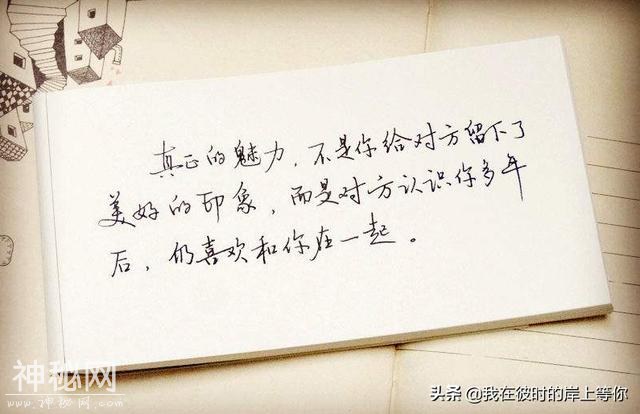 真正的魅力，不是你给对方留下了
美好的印象，而是对方认识你多年
后，仍喜欢和你在一起。
神秘网
www.shenmw.com
头条 @我在彼时的岸上等你